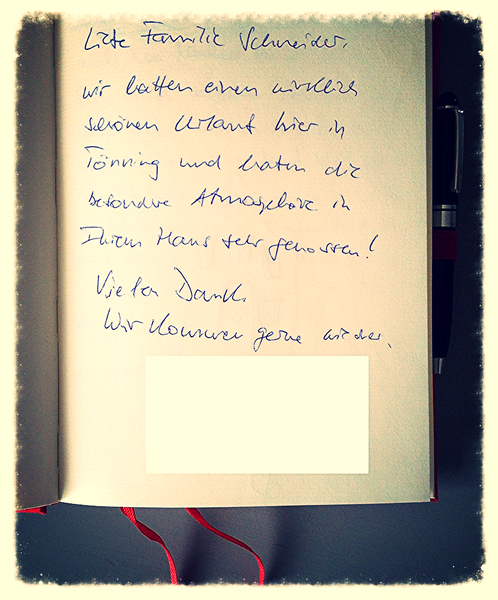 Liebe Familie Schneider,
wir hatten einen wirklich
schönen Urlaub hier in
Tönning und haben die
besondere Atmosphäre in
Ihrem Haus sehr genossen!
Vielen Dank.
Wir kommen gerne wieder.